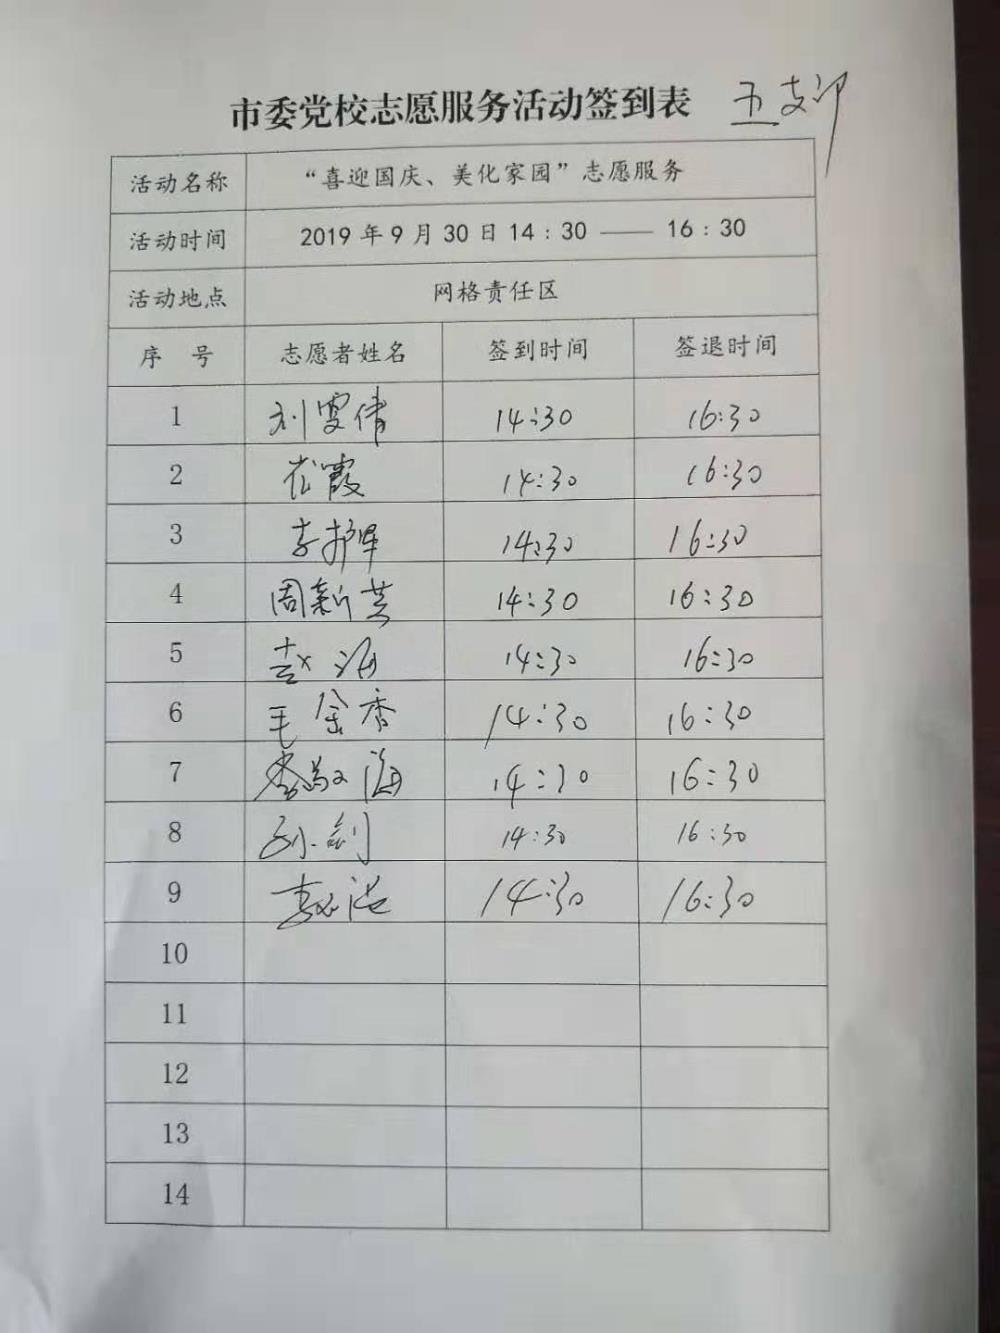 市委党校志愿服务活动签到表 五支部
活动名称 “喜迎国庆、美化家园”志愿服务
活动时间 2019 年 9 月 30 日 14：30 —— 16：30
活动地点 网格责任区
序 号 志愿者姓名 签到时间 签退时间
1 刘雯倩 14:30 16:30
2 崔霞 14:30 16:30
3 李 14:30 16:30
4 周新芸 14:30 16:30
5 赵海 14:30 16:30
6 毛金香 14:30 16:30
7 海 14:30 16:30
8 孙剑 14:30 16:30
9 14:30 16:30
10
11
12
13
14